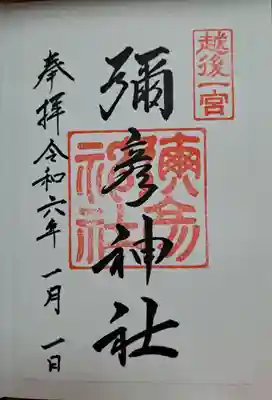 越後一宮
彌彦神社
奉拝令和六年一月一日